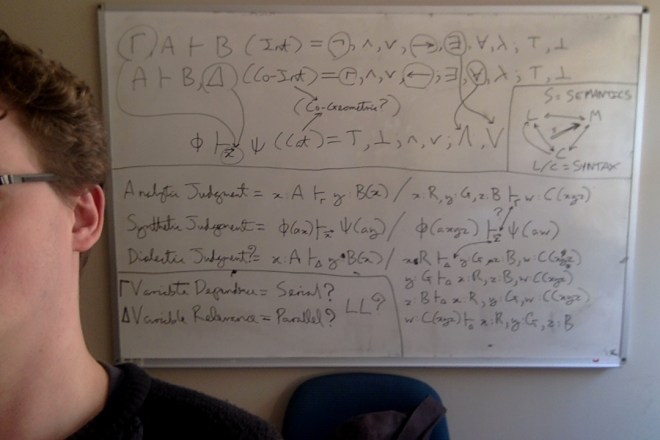 Γ, A ⊢ B (Int) = ¬, ∧, ∨, →, ∃, ∀, λ, ⊤, ⊥
A ⊢ B, Δ (Co-Int) = ⌐, ∧, ∨, ←, ∃, ∀, λ, ⊤, ⊥
(Co-Geometric?)
Φ ⊢x Ψ (Cat) = ⊤, ⊥, ∧, ∨, ⋀, ⋁
S = SEMANTICS
L M
S
C
L/C = SYNTAX
Analytic Judgment = x:A ⊢Γ y:B(x) / x:R, y:G, z:B ⊢Γ w:C(xyz)
?
Synthetic Judgement = Φ(ax) ⊢x Ψ(ay) / Φ(axyz) ⊢x Ψ(aw)
Dialectic Judgment? = x:A ⊢Δ y:B(x) / x:R ⊢Δ y:G, z:B, w:C(xyz)
y:G ⊢Δ x:R, z:B, w:C(xyz)
z:B ⊢Δ x:R, y:G, w:C(xyz)
w:C(xyz) ⊢Δ x:R, y:G, z:B
Γ Variable Dependence = Serial?
Δ Variable Relevance = Parallel?
LL?